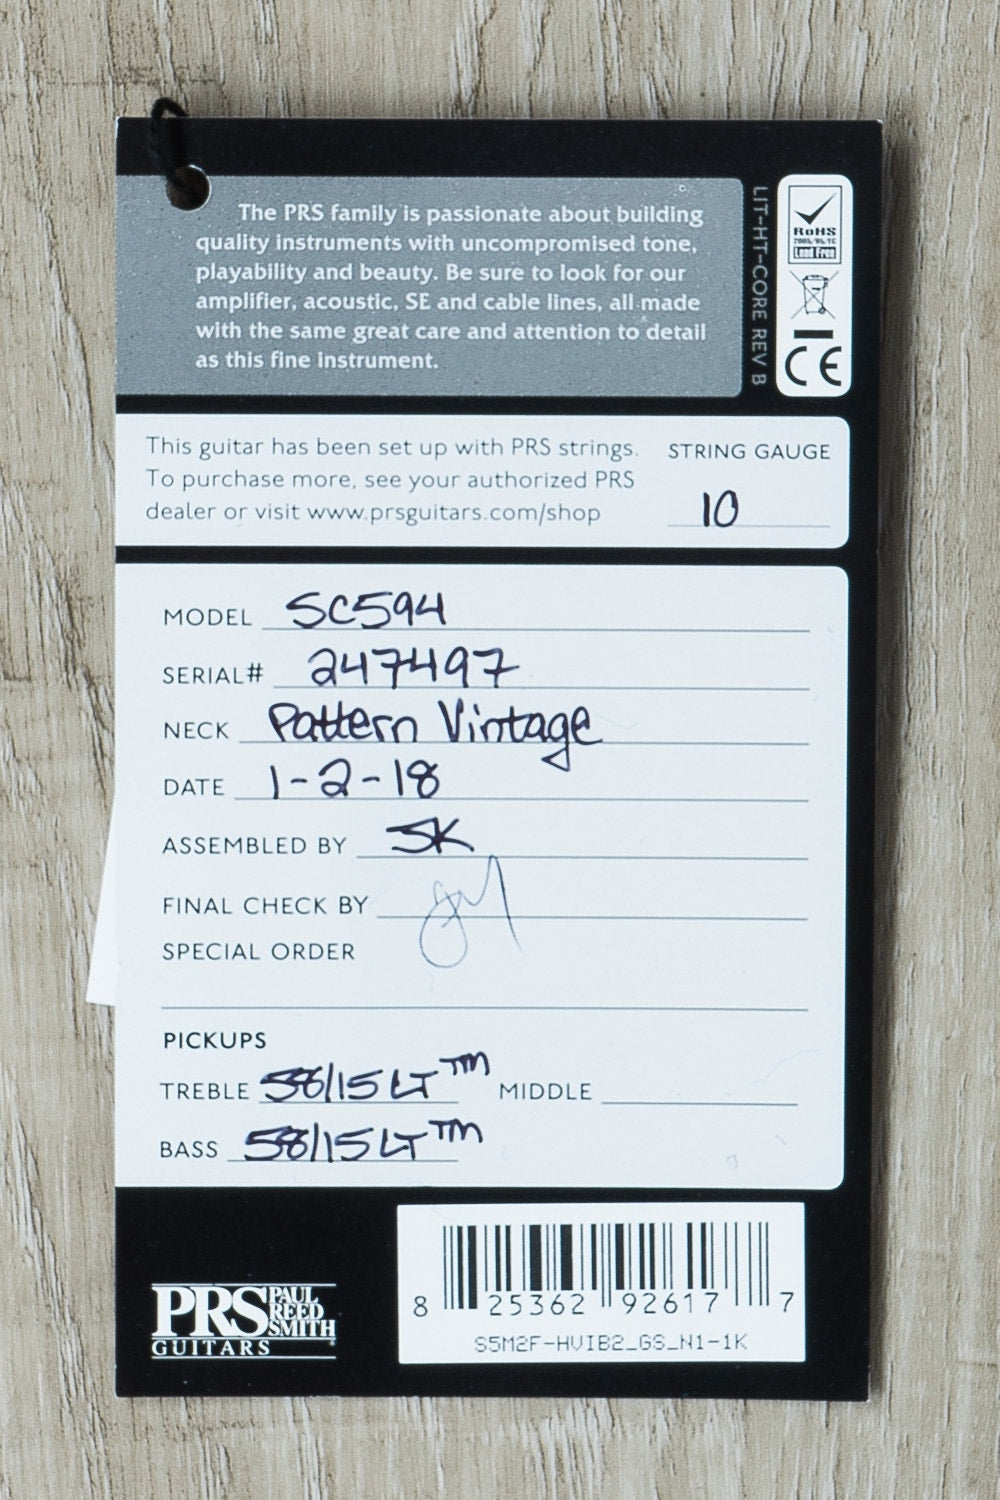 The PRS family is passionate about building
quality instruments with uncompromised tone,
playability and beauty. Be sure to look for our
amplifier, acoustic, SE and cable lines, all made
with the same great care and attention to detail
as this fine instrument.
LIT-HT-CORE REV B
RoHS
2005/95/EC
Lead Free
CE
This guitar has been set up with PRS strings.
To purchase more, see your authorized PRS
dealer or visit www.prsguitars.com/shop
STRING GAUGE
10
MODEL SC594
SERIAL# 247497
NECK Pattern Vintage
DATE 1-2-18
ASSEMBLED BY SK
FINAL CHECK BY
SPECIAL ORDER
PICKUPS
TREBLE 58/15 LT™ MIDDLE
BASS 58/15 LT™
PRS PAUL REED SMITH
GUITARS
8 25362 92617 7
S5M2F-HVIB2_GS_N1-1K